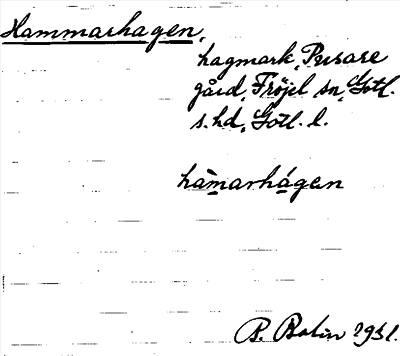 Hammarhagen,
hagmark, Pusare
gård, Fröjel sn, Gotl.
s. hd, Gotl. l.
hàmarhágen
B. Bolin 1931.